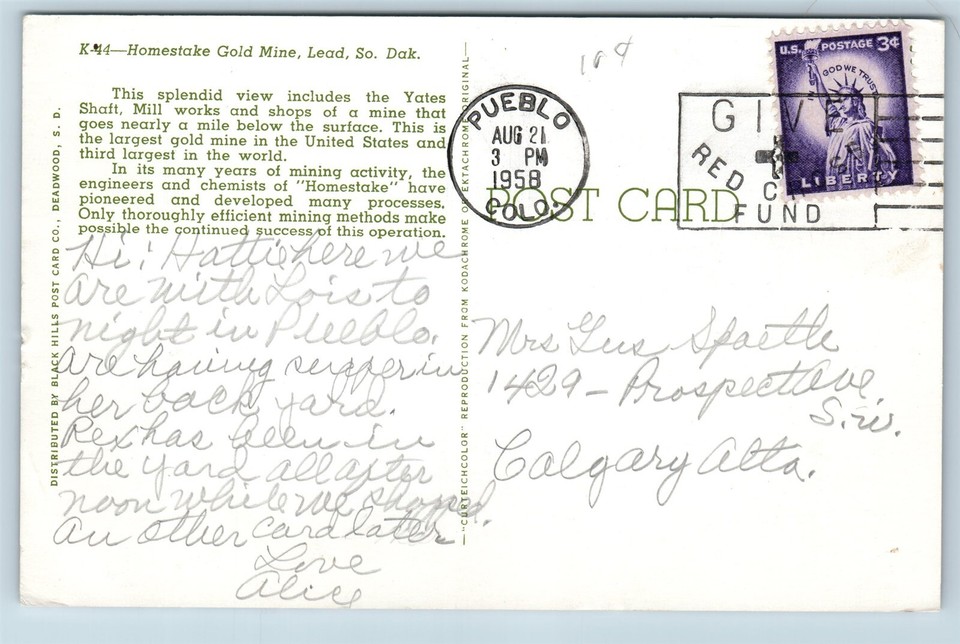 K-44—Homestake Gold Mine, Lead, So. Dak.
This splendid view includes the Yates
Shaft, Mill works and shops of a mine that
goes nearly a mile below the surface. This is
the largest gold mine in the United States and
third largest in the world.
In its many years of mining activity, the
engineers and chemists of "Homestake" have
pioneered and developed many processes.
Only thoroughly efficient mining methods make
possible the continued success of this operation.
Hi! Hattie here we
are with Lois to
night in Pueblo.
Are having supper in
her back yard.
Rex has been in
the yard all after
noon while we shopped.
An other card later
Love
Alice
DISTRIBUTED BY BLACK HILLS POST CARD CO., DEADWOOD, S. D.
—"CURTEICHCOLOR" REPRODUCTION FROM KODACHROME OR EKTACHROME ORIGINAL—
PUEBLO
AUG 21
3 PM
1958
COLO.
POST CARD
GIVE
RED CR
FUND
U.S. POSTAGE 3¢
IN GOD WE TRUST
LIBERTY
Mrs Gus Spaetle
1429 - Prospect Ave
S.W.
Calgary Alta.